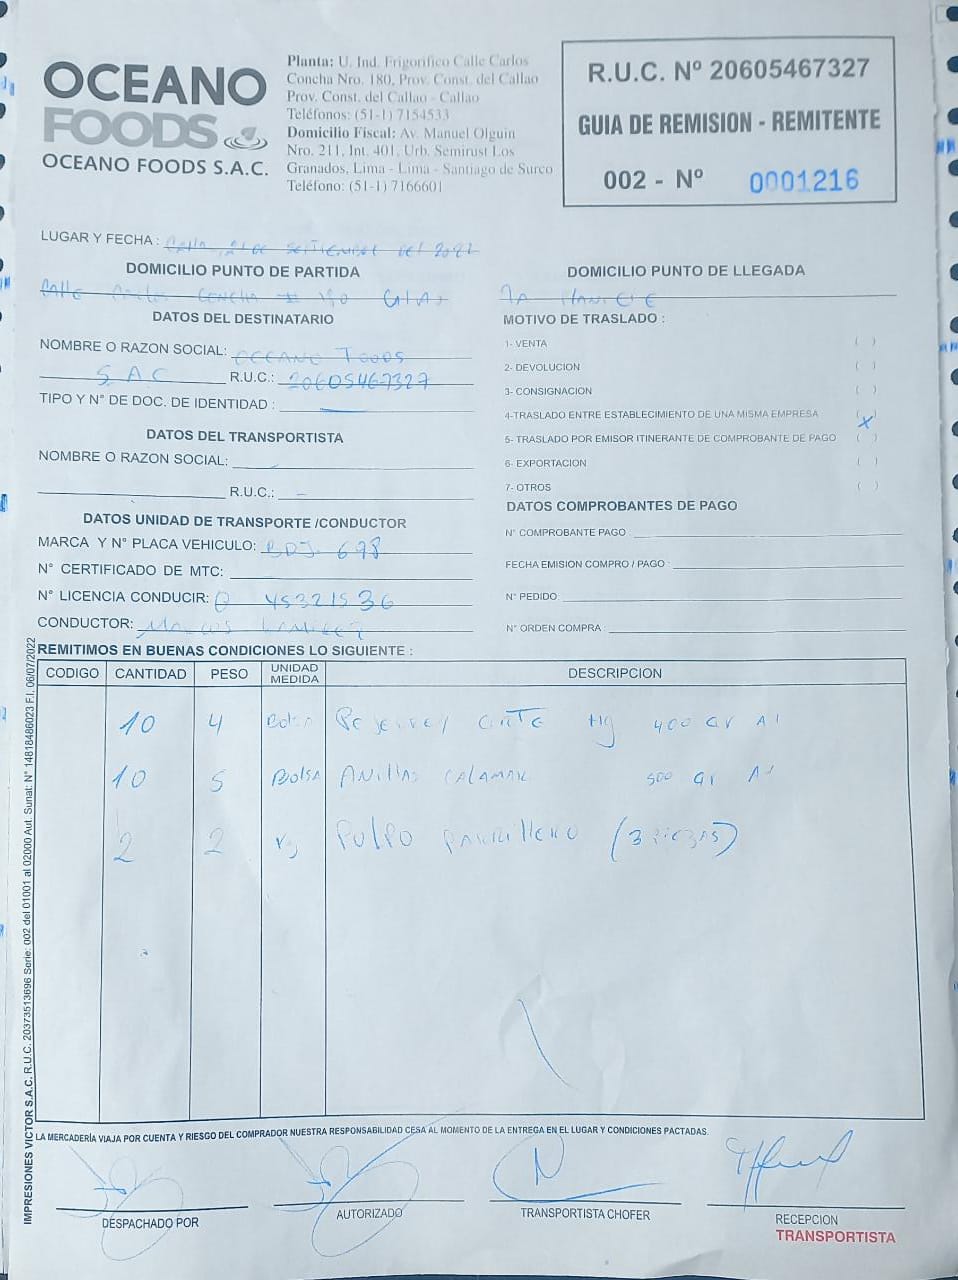 OCEANO
FOODS
OCEANO FOODS S.A.C.
Planta: U. Ind. Frigorifico Calle Carlos
Concha Nro. 180, Prov. Const. del Callao
Prov. Const. del Callao - Callao
Teléfonos: (51-1) 7154533
Domicilio Fiscal: Av. Manuel Olguin
Nro. 211, Int. 401, Urb. Semirust Los
Granados, Lima - Lima - Santiago de Surco
Teléfono: (51-1) 7166601
R.U.C. Nº 20605467327
GUIA DE REMISION - REMITENTE
002 - Nº 0001216
LUGAR Y FECHA : 21 de Septiembre del 2022
DOMICILIO PUNTO DE PARTIDA
Calle Carlos Concha # 190 Callao
DOMICILIO PUNTO DE LLEGADA
DATOS DEL DESTINATARIO
NOMBRE O RAZON SOCIAL: OCEANO FOODS
S.A.C R.U.C.: 20605467327
TIPO Y N° DE DOC. DE IDENTIDAD :
MOTIVO DE TRASLADO :
1- VENTA ( )
2- DEVOLUCION ( )
3- CONSIGNACION ( )
4-TRASLADO ENTRE ESTABLECIMIENTO DE UNA MISMA EMPRESA (X)
5- TRASLADO POR EMISOR ITINERANTE DE COMPROBANTE DE PAGO ( )
6- EXPORTACION ( )
7- OTROS ( )
DATOS DEL TRANSPORTISTA
NOMBRE O RAZON SOCIAL:
R.U.C.: -
DATOS UNIDAD DE TRANSPORTE /CONDUCTOR
MARCA Y N° PLACA VEHICULO: BDJ- 698
N° CERTIFICADO DE MTC:
N° LICENCIA CONDUCIR: Q 45321536
CONDUCTOR: Marcos Ramirez
DATOS COMPROBANTES DE PAGO
N° COMPROBANTE PAGO
FECHA EMISION COMPRO / PAGO :
N° PEDIDO:
N° ORDEN COMPRA :
REMITIMOS EN BUENAS CONDICIONES LO SIGUIENTE :
CODIGO CANTIDAD PESO UNIDAD MEDIDA DESCRIPCION
10 4 Bolsa Pejerrey Corte Hg 400 Gr A1
10 5 Bolsa Anillas Calamar 500 Gr A1
2 2 Kg Pulpo Parrillero (3 piezas)
LA MERCADERÍA VIAJA POR CUENTA Y RIESGO DEL COMPRADOR NUESTRA RESPONSABILIDAD CESA AL MOMENTO DE LA ENTREGA EN EL LUGAR Y CONDICIONES PACTADAS.
DESPACHADO POR
AUTORIZADO
TRANSPORTISTA CHOFER
RECEPCION
TRANSPORTISTA
IMPRESIONES VICTOR S.A.C. R.U.C. 20373513696 Serie: 002 del 01001 al 02000 Aut. Sunat: N° 14818486023 F.I. 06/07/2022